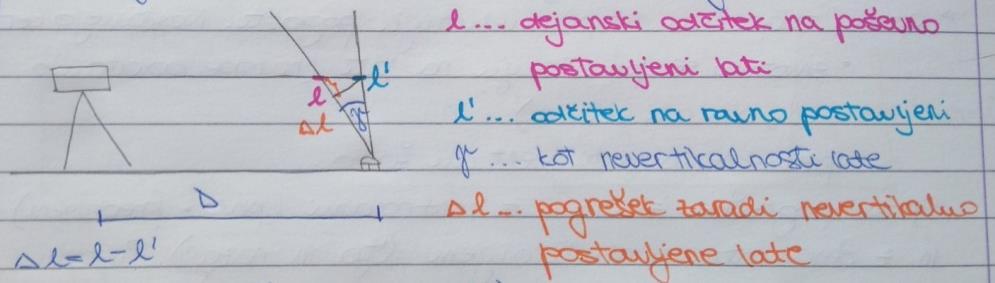 l ... dejanski odčitek na poševno
postavljeni lati
l' ... odčitek na ravno postavljeni
γ ... kot nevertikalnosti late
Δl ... pogrešek zaradi nevertikalno
postavljene late
l'
l
Δl
γ
D
Δl = l - l'